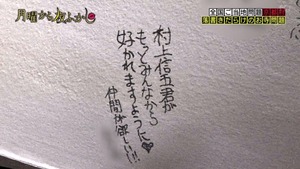 月曜から夜ふかし
全国ご当地問題
落書きだらけのお寺問題
村上信五君が
もっとみんなから
好かれますように♥
仲間が欲しい!!!